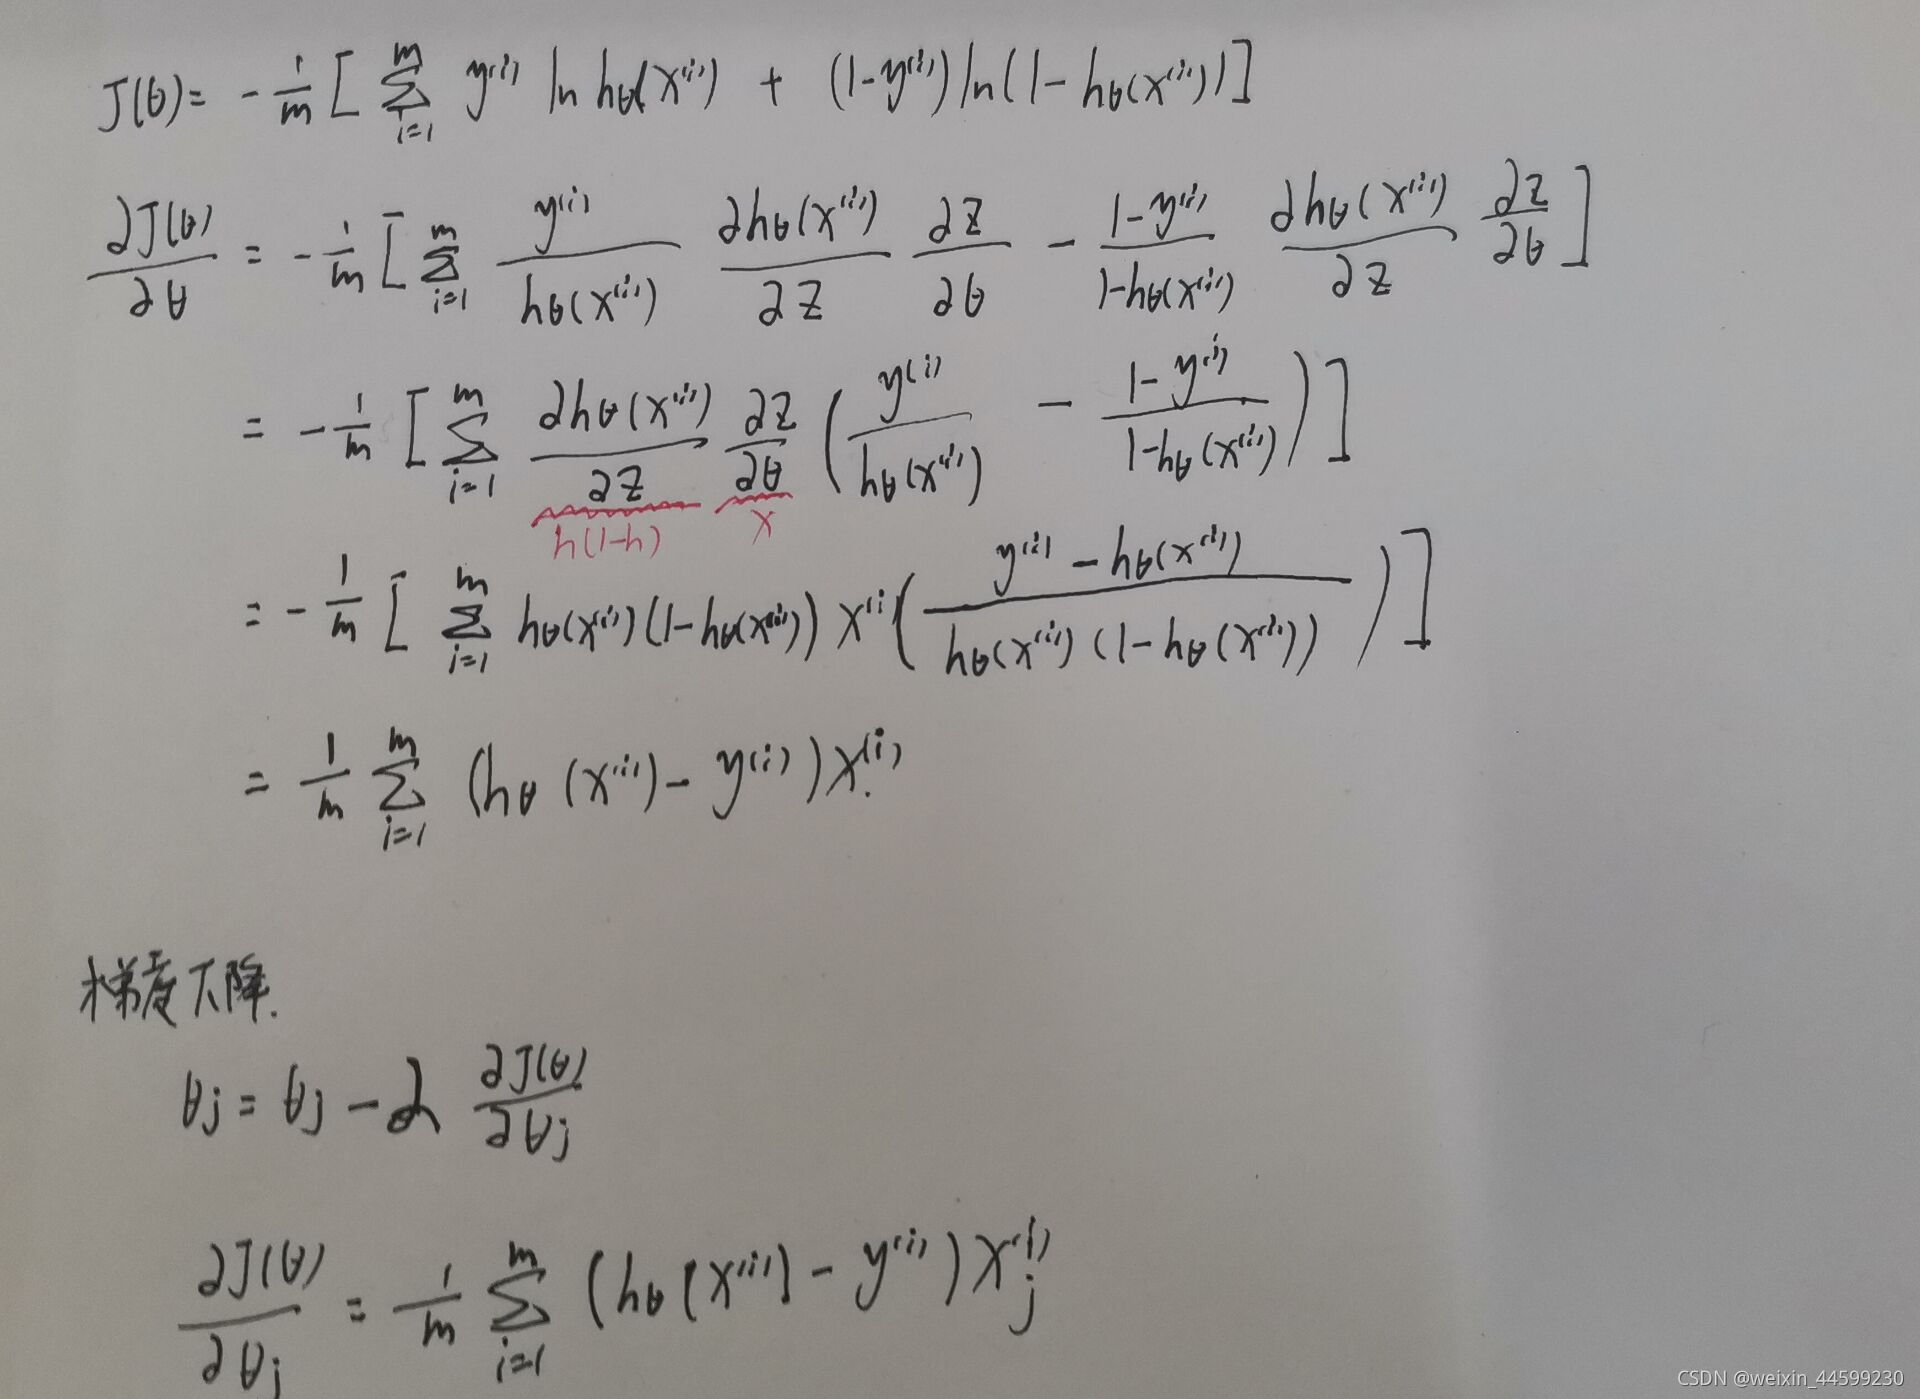 J(θ) = -1/m [ Σ_{i=1}^{m} y^{(i)} ln hθ(x^{(i)}) + (1-y^{(i)}) ln(1-hθ(x^{(i)})) ]
∂J(θ)/∂θ = -1/m [ Σ_{i=1}^{m} y^{(i)}/hθ(x^{(i)}) ∂hθ(x^{(i)})/∂z ∂z/∂θ - (1-y^{(i)})/(1-hθ(x^{(i)})) ∂hθ(x^{(i)})/∂z ∂z/∂θ ]
= -1/m [ Σ_{i=1}^{m} ∂hθ(x^{(i)})/∂z ∂z/∂θ ( y^{(i)}/hθ(x^{(i)}) - (1-y^{(i)})/(1-hθ(x^{(i)})) ) ]
h(1-h) x
= -1/m [ Σ_{i=1}^{m} hθ(x^{(i)})(1-hθ(x^{(i)})) x^{(i)} ( (y^{(i)} - hθ(x^{(i)}))/(hθ(x^{(i)})(1-hθ(x^{(i)}))) ) ]
= 1/m Σ_{i=1}^{m} (hθ(x^{(i)}) - y^{(i)}) x^{(i)}.
梯度下降.
θj = θj - α ∂J(θ)/∂θj
∂J(θ)/∂θj = 1/m Σ_{i=1}^{m} (hθ(x^{(i)}) - y^{(i)}) x_j^{(i)}
CSDN @weixin_44599230